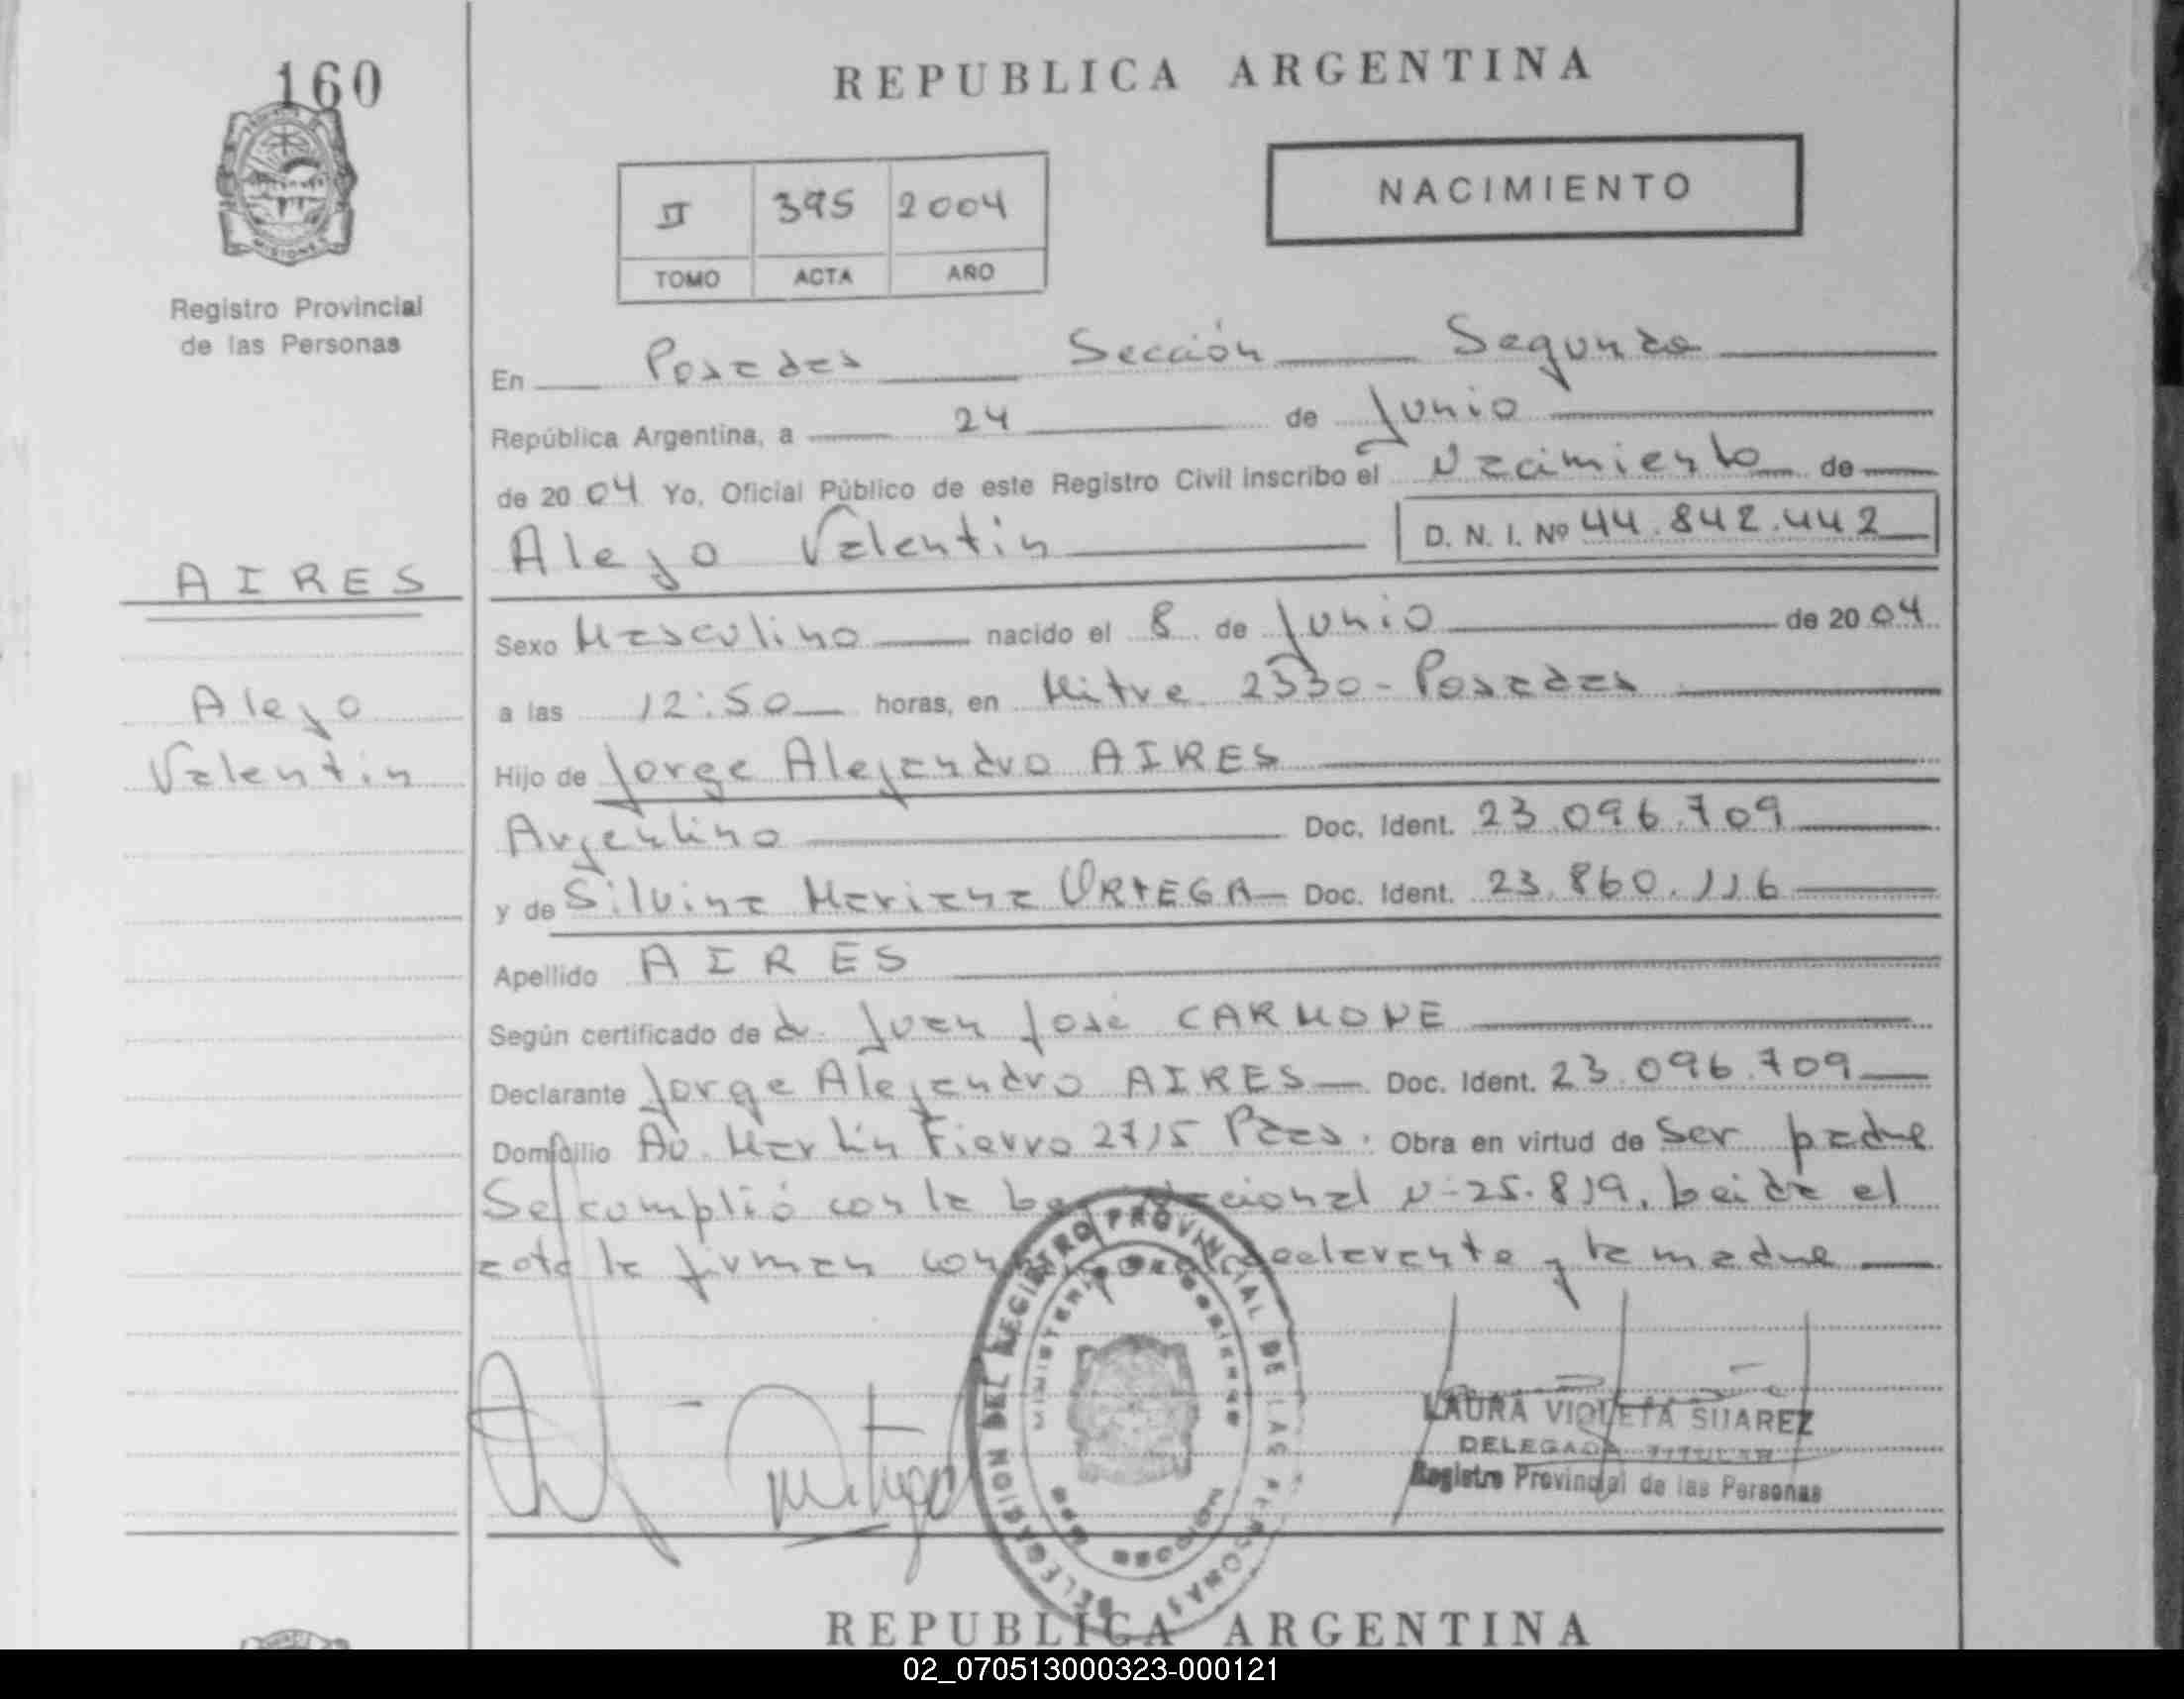 160
REPUBLICA ARGENTINA
II 395 2004
TOMO ACTA AÑO
NACIMIENTO
MISIONES
Registro Provincial
de las Personas
En Posadas Sección Segunda
República Argentina, a 24 de Junio
de 2004 Yo, Oficial Público de este Registro Civil inscribo el Nacimiento de
Alejo Valentin D. N. I. Nº 44.842.442
AIRES
Sexo Masculino nacido el 8 de Junio de 2004
Alejo
a las 12:50 horas, en Mitre 2330 - Posadas
Valentin
Hijo de Jorge Alejandro AIRES
Argentino Doc. Ident. 23.096.709
y de Silvina Mariana ORTEGA Doc. Ident. 23.860.116
Apellido AIRES
Según certificado de dr. Juan José CARMONE
Declarante Jorge Alejandro AIRES Doc. Ident. 23.096.709
Domicilio Av. Martín Fierro 2715 Pdas. Obra en virtud de Ser padre
Se cumplió con la Nacional N-25.819. Leida el
acta la firman declarante y la madre
DELEGACION DEL REGISTRO PROVINCIAL DE LAS PERSONAS
MINISTERIO DE GOBIERNO
MISIONES
LAURA VIOLETA SUAREZ
DELEGADA TITULAR
Registro Provincial de las Personas
REPUBLICA ARGENTINA
02_070513000323-000121